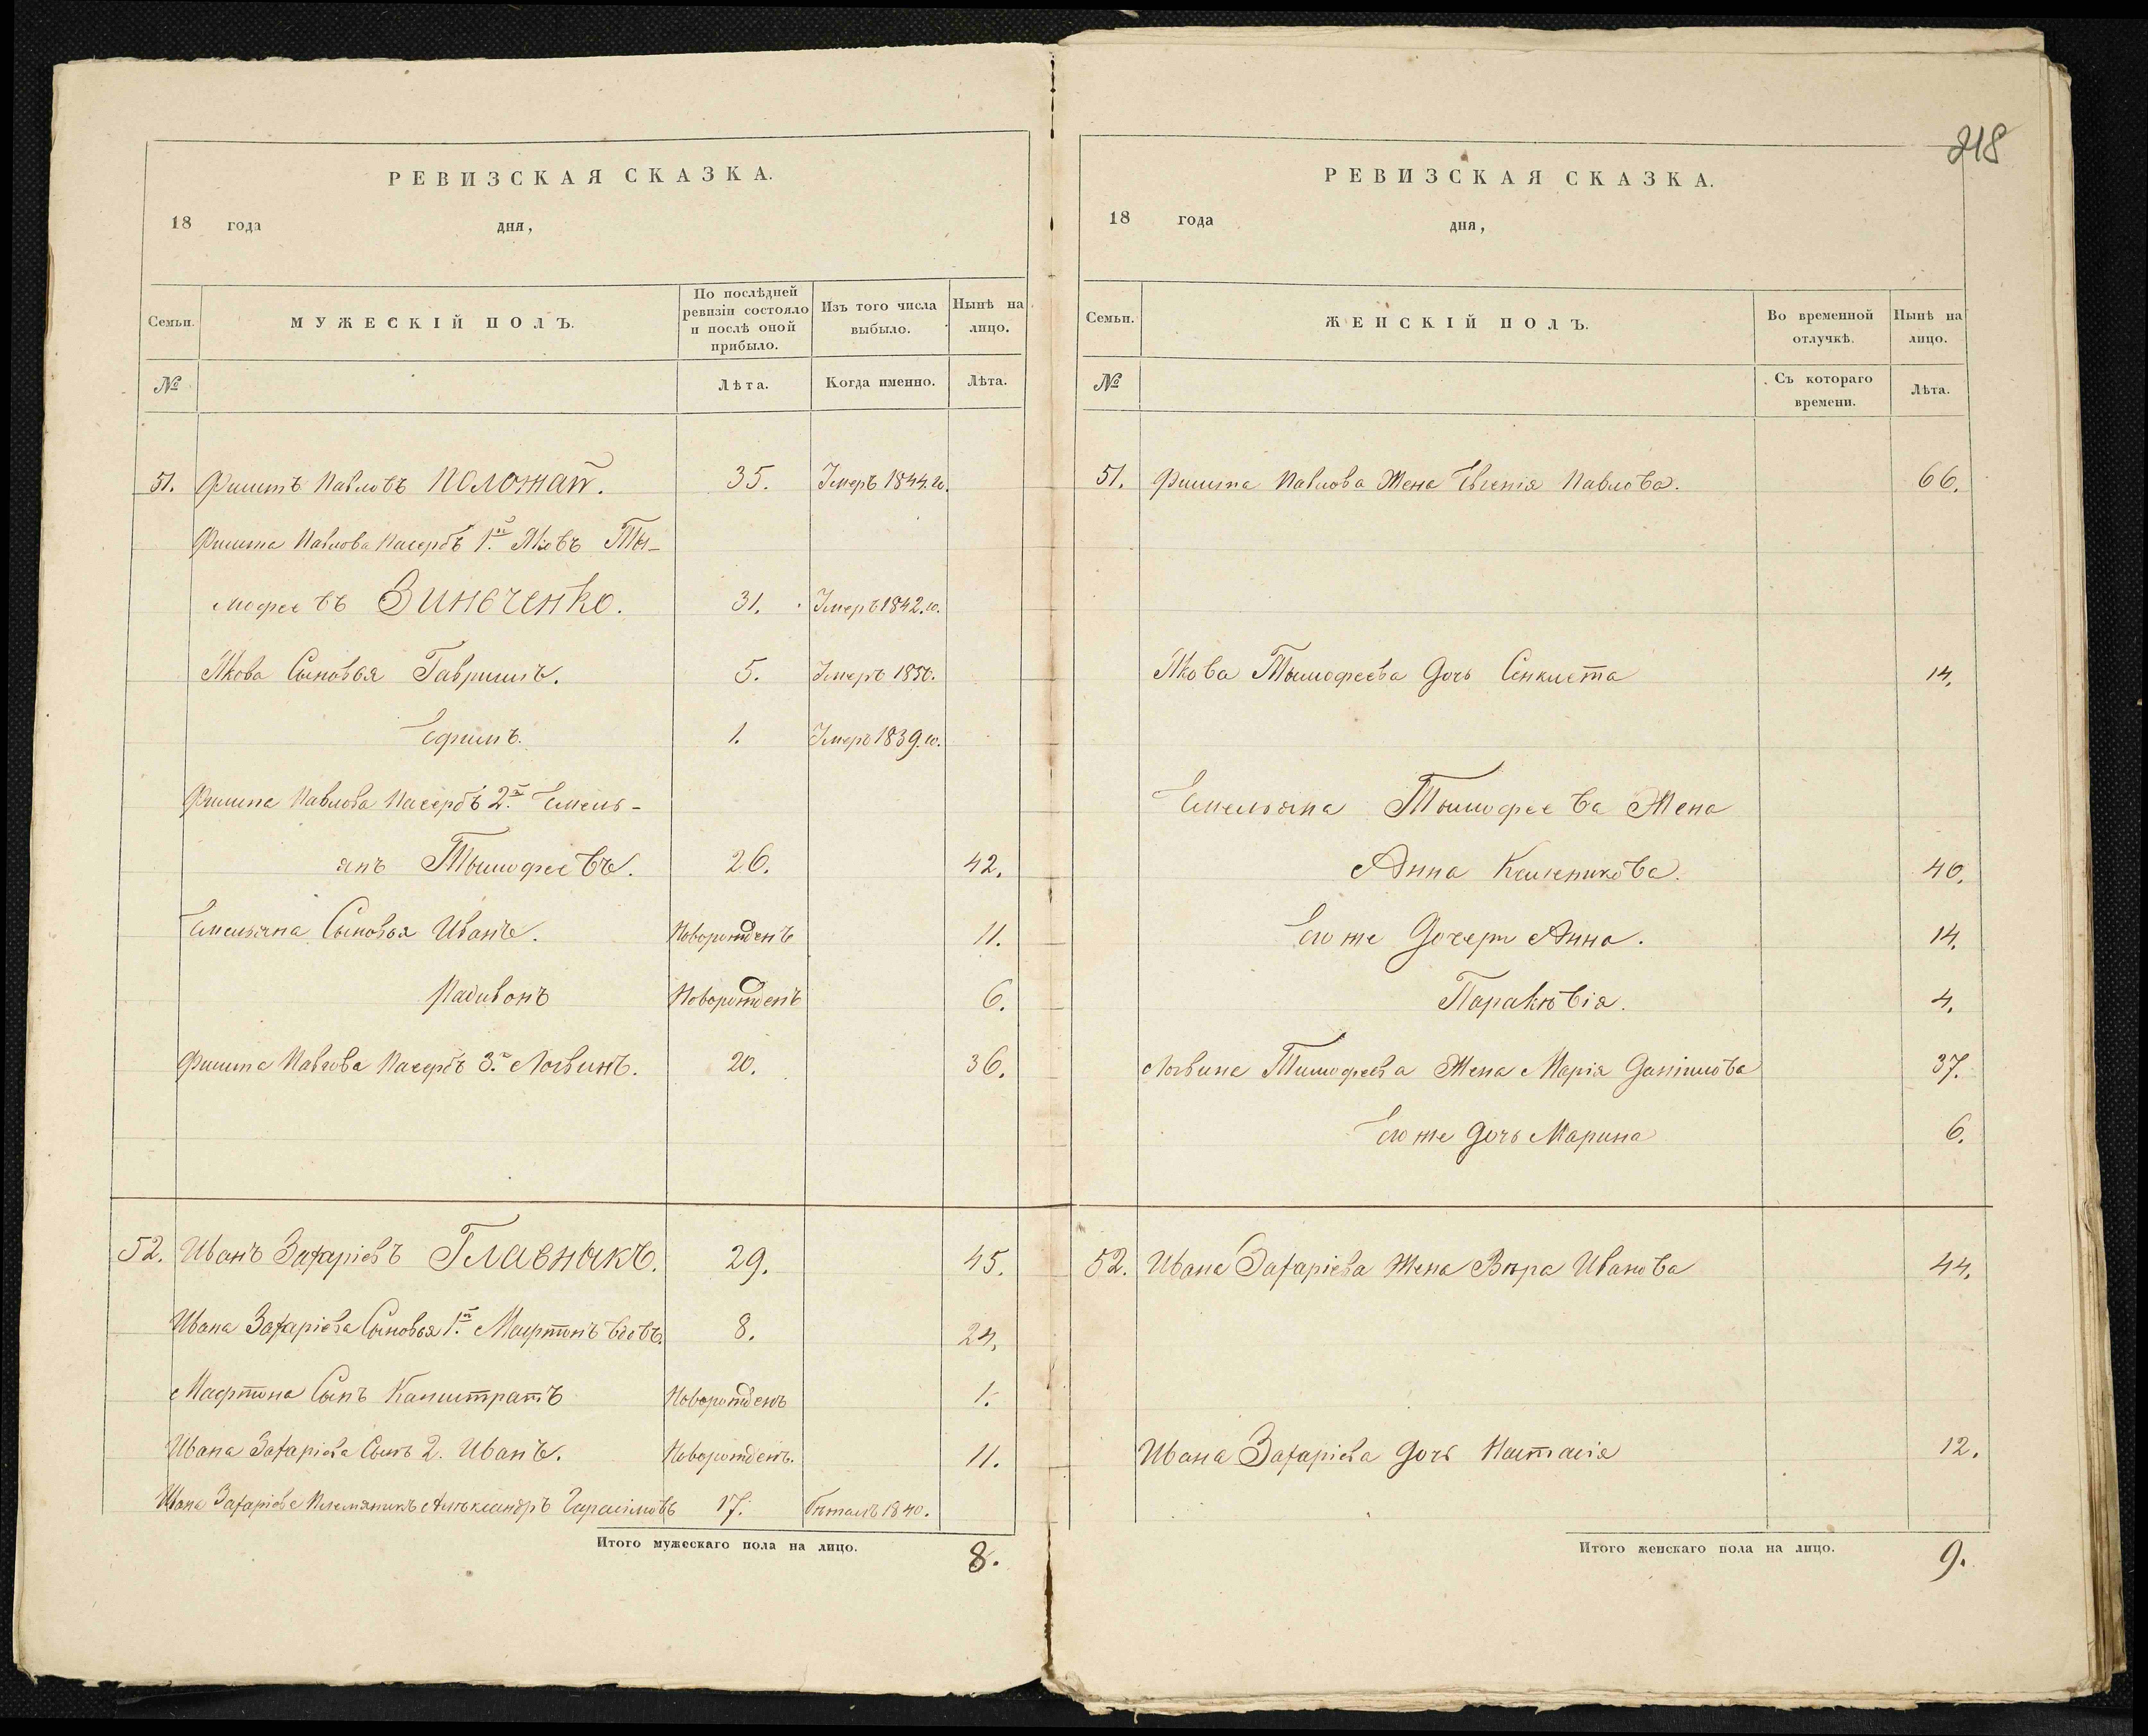 218
РЕВИЗСКАЯ СКАЗКА.
18 года дня,
Семьи. МУЖЕСКІЙ ПОЛЪ. По послѣдней ревизіи состояло и послѣ оной прибыло. Изъ того числа выбыло. Нынѣ на лицо.
№ Лѣта. Когда именно. Лѣта.
51. Филипъ Павловъ Положай. 35. Умеръ 1844.го.
Филипа Павлова Пасербъ 1й. Яковъ Ты-
мофеевъ Зинченко. 31. Умеръ 1842.го.
Якова Сыновья Гаврыилъ. 5. Умеръ 1850.
Ефимъ. 1. Умеръ 1839.го.
Филипа Павлова Пасербъ 2й. Емель-
янъ Тымофеевъ. 26. 42.
Емельяна Сыновья Иванъ. Новорожденъ 11.
Радивонъ Новорожденъ 6.
Филипа Павлова Пасербъ 3й. Логвинъ. 20. 36.
52. Иванъ Захаріевъ Главнякъ. 29. 45.
Ивана Захаріева Сыновья 1й. Мартинъ вдовъ. 8. 24.
Мартина Сынъ Калистратъ Новорожденъ 1.
Ивана Захаріева Сынъ 2. Иванъ. Новорожденъ. 11.
Ивана Захаріева Племяникъ Александръ Гарасімовъ 17. бѣжалъ 1840.
Итого мужескаго пола на лицо. 8.
РЕВИЗСКАЯ СКАЗКА.
18 года дня,
Семьи. ЖЕНСКІЙ ПОЛЪ. Во временной отлучкѣ. Нынѣ на лицо.
№ Съ котораго времени. Лѣта.
51. Филипа Павлова Жена Евгенія Павлова. 66.
Якова Тымофеева Дочь 14.
Емельяна Тымофеева Жена
Анна 40.
Его же Дочери Анна. 14.
Параскѣвія. 4.
Логвина Тимофеева Жена Марія Данилова 37.
Его же Дочь Марина 6.
52. Ивана Захаріева Жена Вѣра Иванова 44.
Ивана Захаріева Дочь Настасія 12.
Итого женскаго пола на лицо. 9.